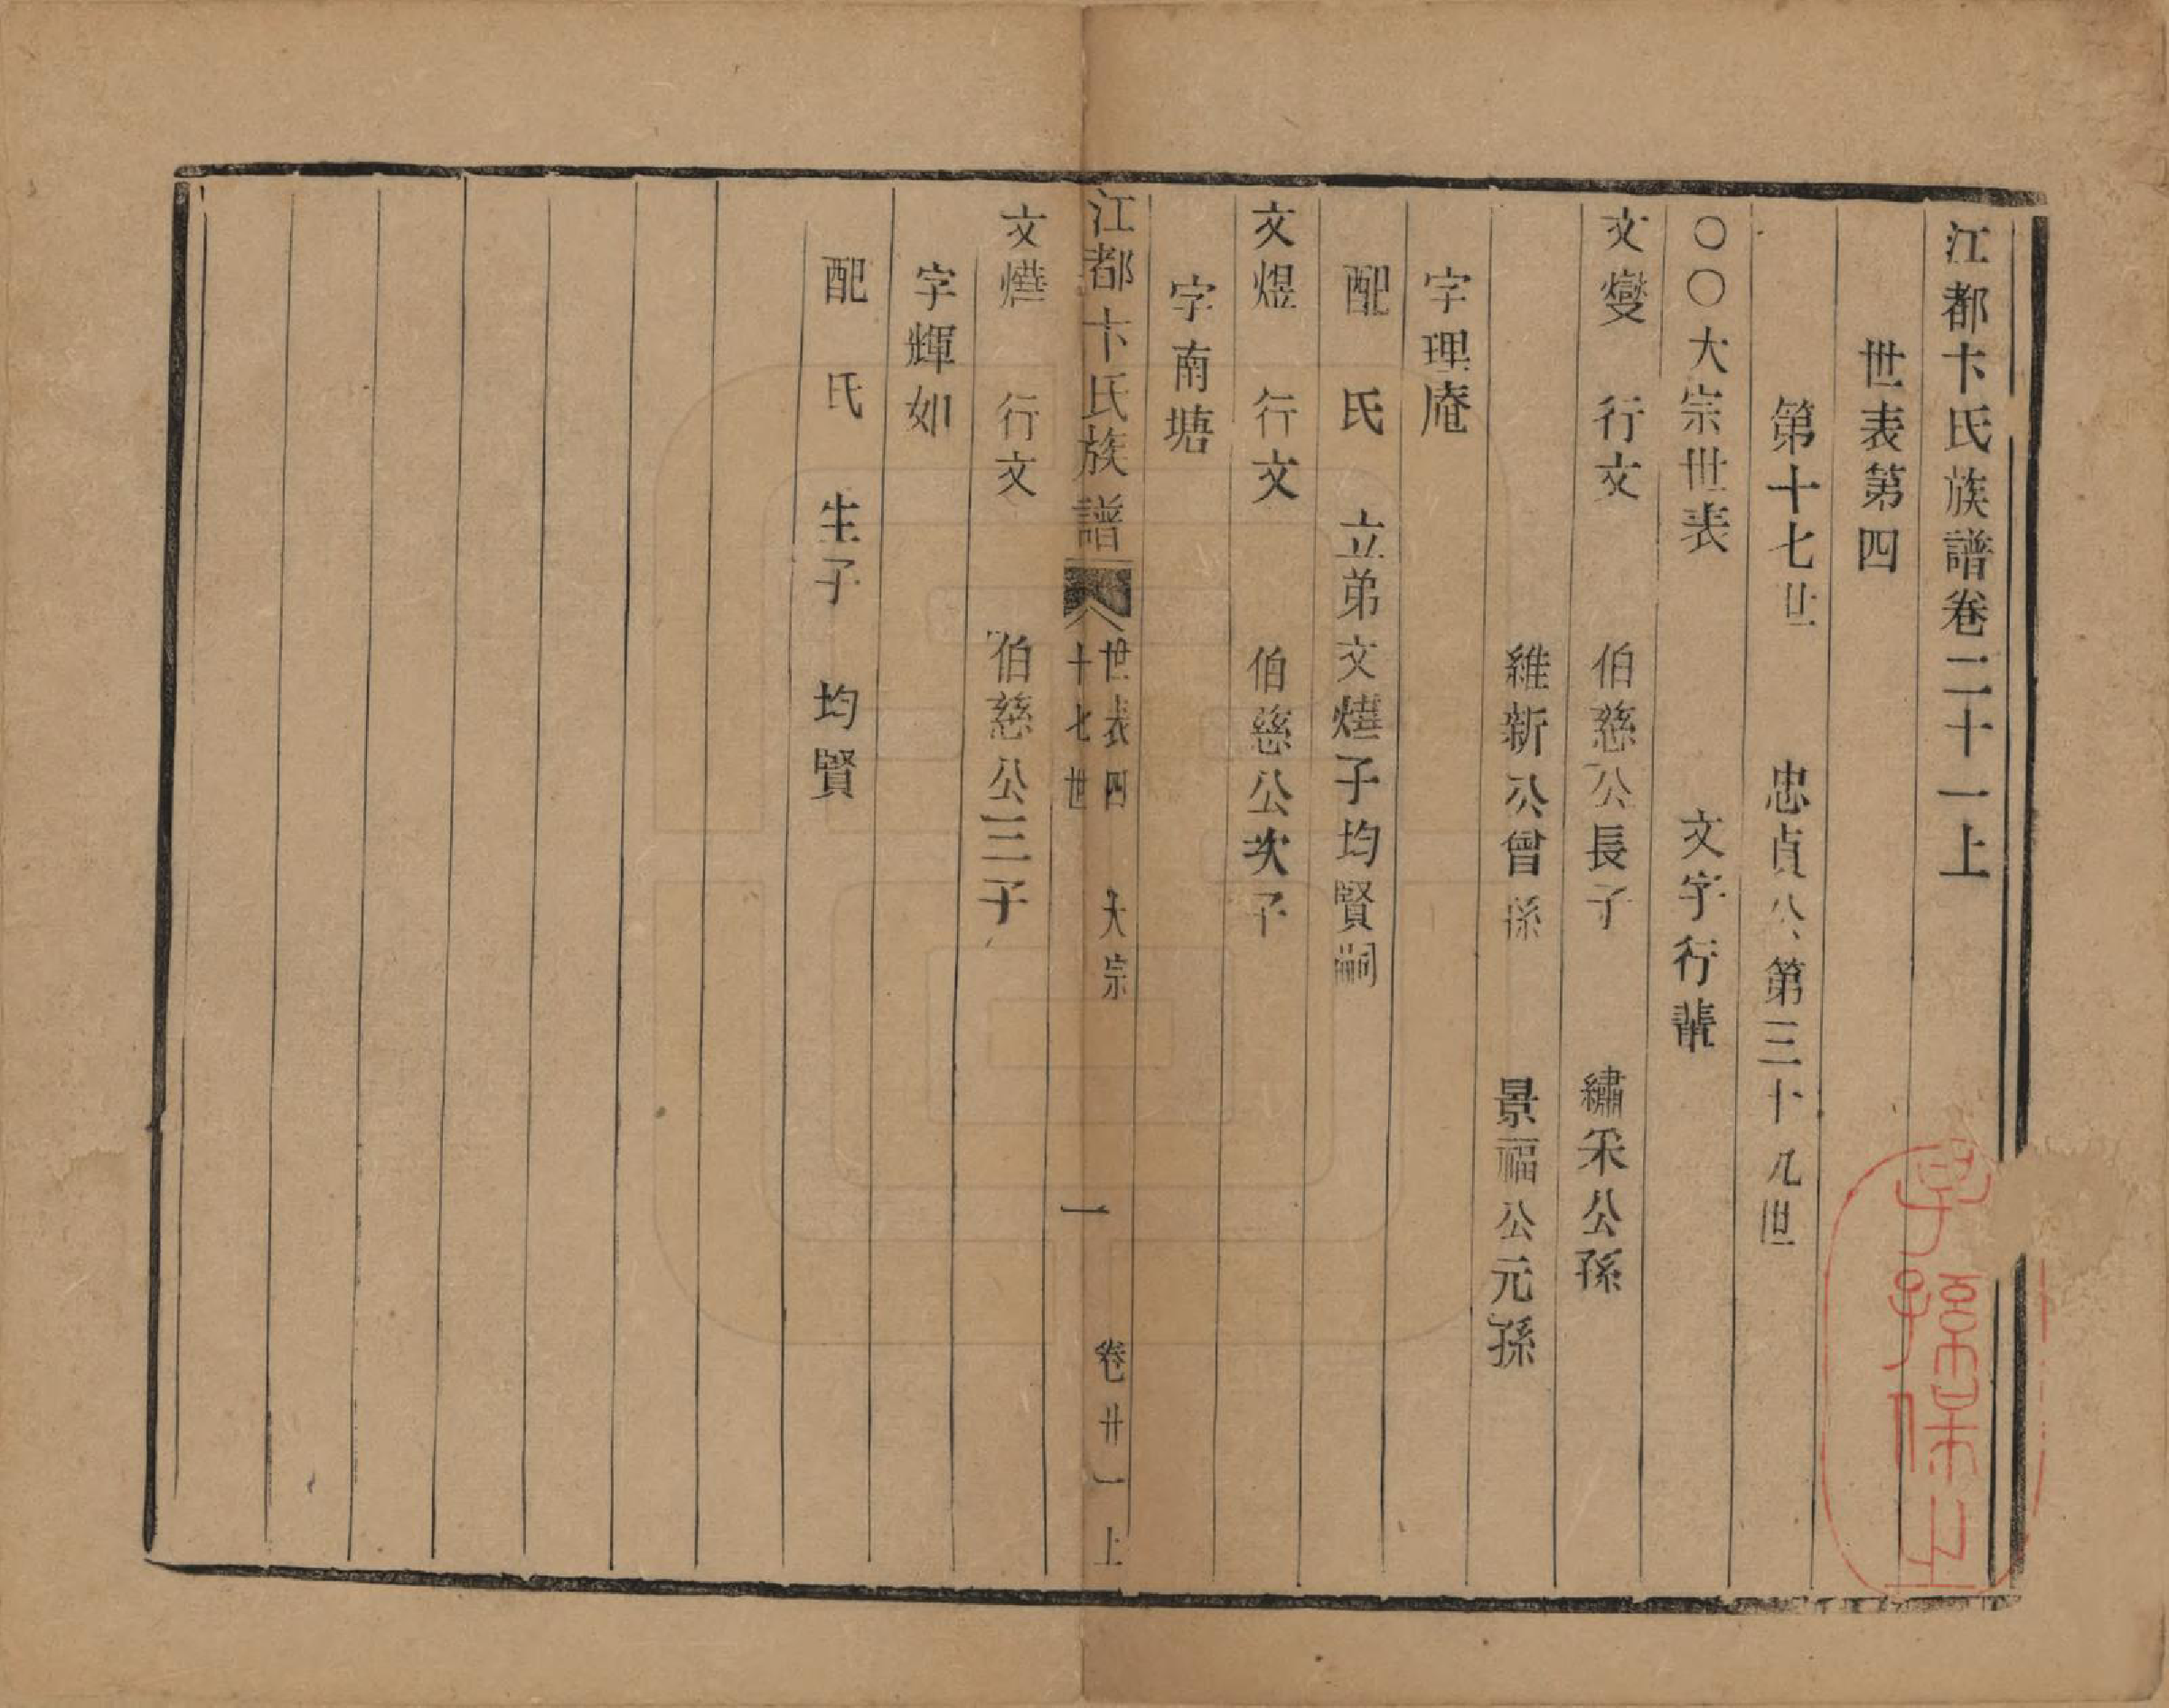 江都卞氏族譜卷二十一上
世表第四
第十七世　忠貞公第三十九世
〇〇大宗世表　文字行輩
文燮　行文　伯慈公長子　繡采公孫
維新公曾孫　景福公元孫
字理庵
配　氏　立弟文燵子均賢嗣
文煜　行文　伯慈公次子
字南塘
江都卞氏族譜　世表四　大宗　十七世　一　卷廿一上
文燵　行文　伯慈公三子
字輝如
配　氏　生子　均賢
子子孫孫保之